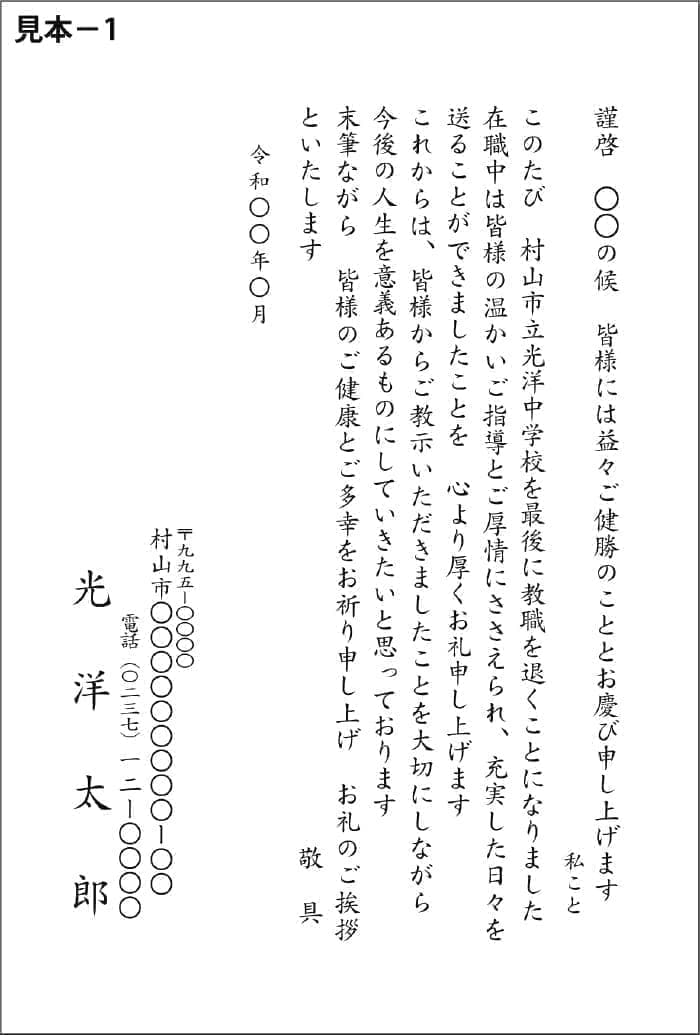 見本－1
謹啓　〇〇の候　皆様には益々ご健勝のこととお慶び申し上げます
私こと
このたび　村山市立光洋中学校を最後に教職を退くことになりました
在職中は皆様の温かいご指導とご厚情にささえられ、充実した日々を
送ることができましたことを　心より厚くお礼申し上げます
これからは、皆様からご教示いただきましたことを大切にしながら
今後の人生を意義あるものにしていきたいと思っております
末筆ながら　皆様のご健康とご多幸をお祈り申し上げ　お礼のご挨拶
といたします
敬　具
令和〇〇年〇月
〒九九五ー〇〇〇〇
村山市〇〇〇〇〇〇〇〇ー〇〇
電話（〇二三七）一二ー〇〇〇〇
光　洋　太　郎